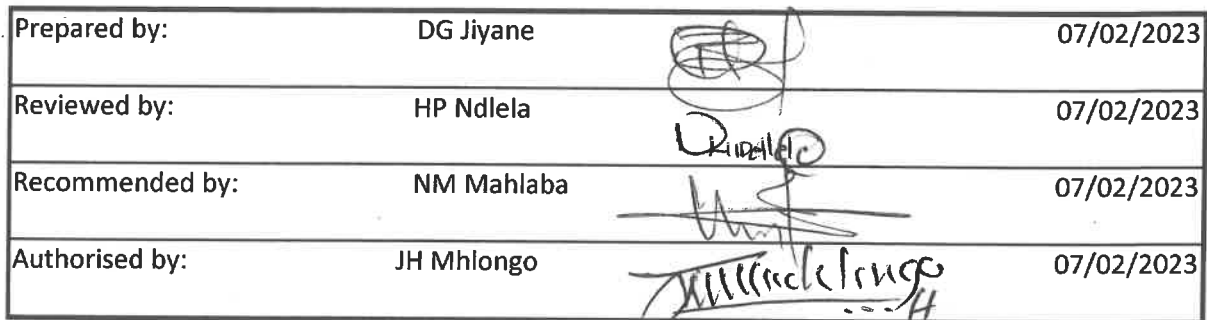 Prepared by: DG Jiyane 07/02/2023
Reviewed by: HP Ndlela 07/02/2023
Recommended by: NM Mahlaba 07/02/2023
Authorised by: JH Mhlongo 07/02/2023